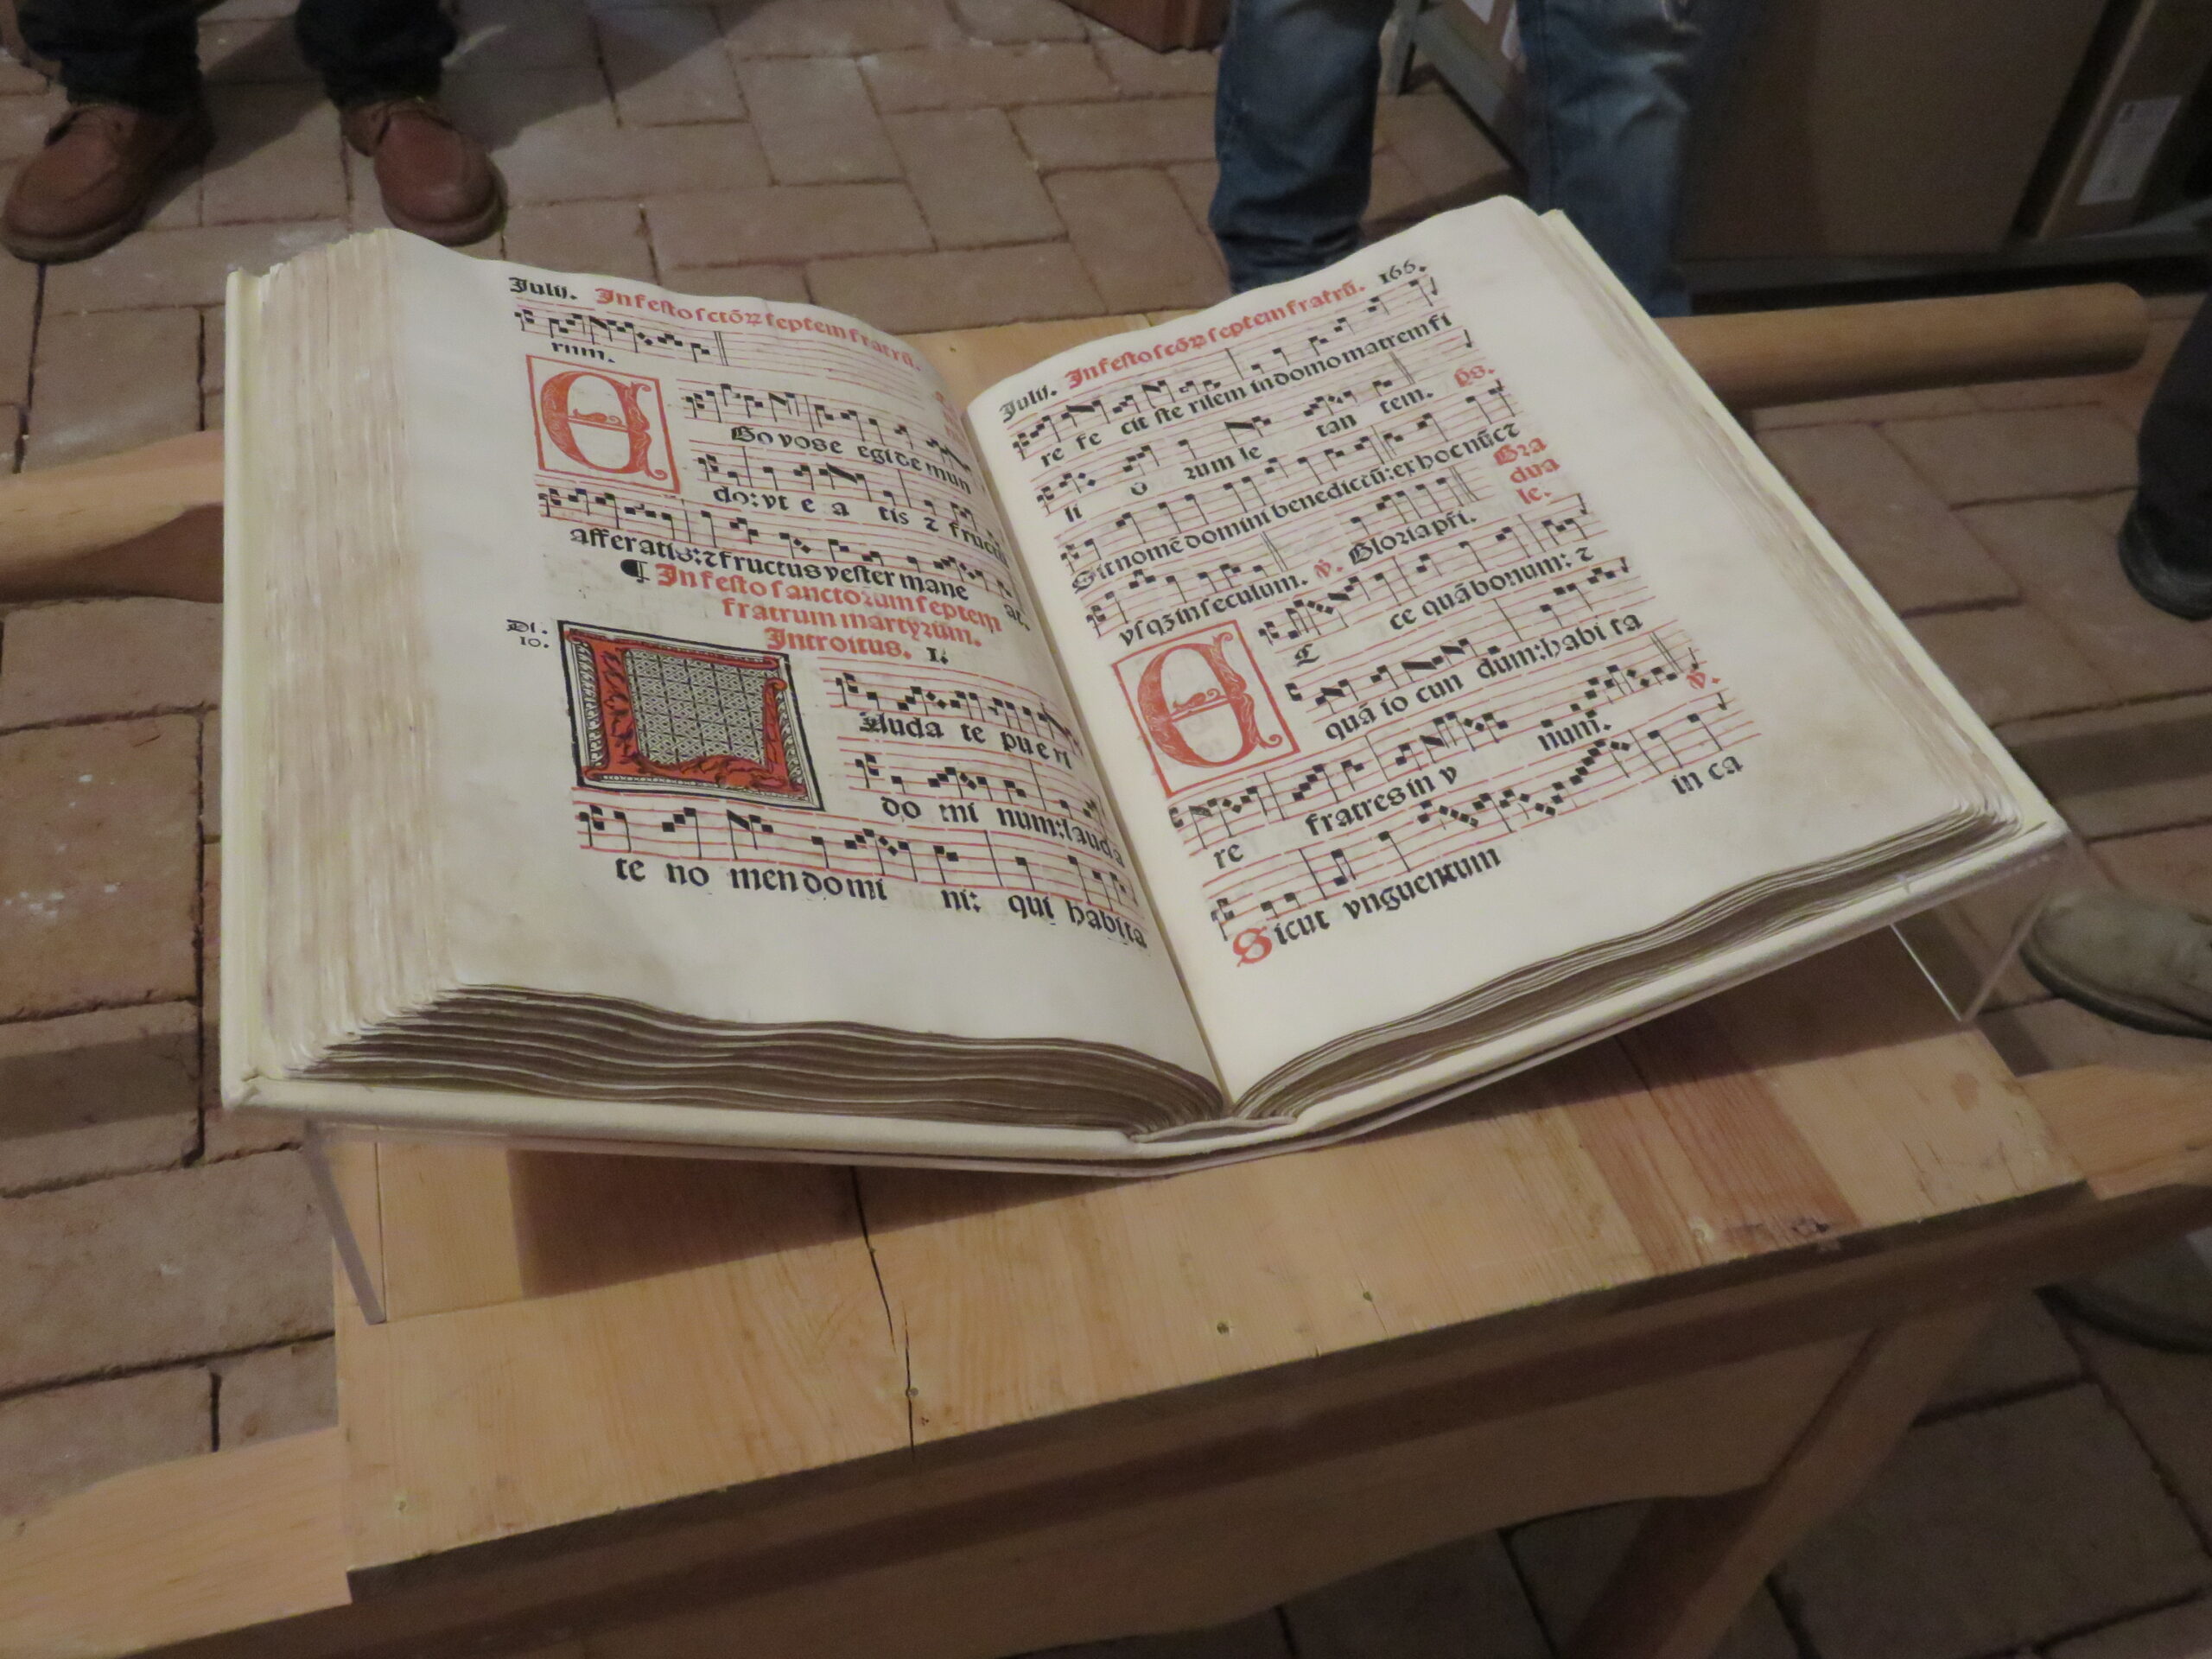 Julij. In festo sctõꝝ septem fratrũ.
rum.
EGo vos e egi de mun
do: vt e a tis ⁊ fructũ
afferatis: ⁊ fructus vester mane at.
¶ In festo sanctorum septem
fratrum martyrum.
Introitus. 1.
Di.
10.
LAuda te pueri
do mi num: lauda
te no men domi ni: qui habita
Julij. In festo scõꝝ septem fratrũ. 166.
re fe cit ste rilem in domo matrem fi
li o rum le tan tem. ps.
Sit nomẽ domini benedictũ: ex hoc nũc ⁊
vsqꝫ in seculum. ℣. Gloria pr̃i. Gra
dua
le.
EC ce quã bonum: ⁊
quã io cun dum: habi ta
re fratres in v num. ℣.
Sicut vnguentum in ca